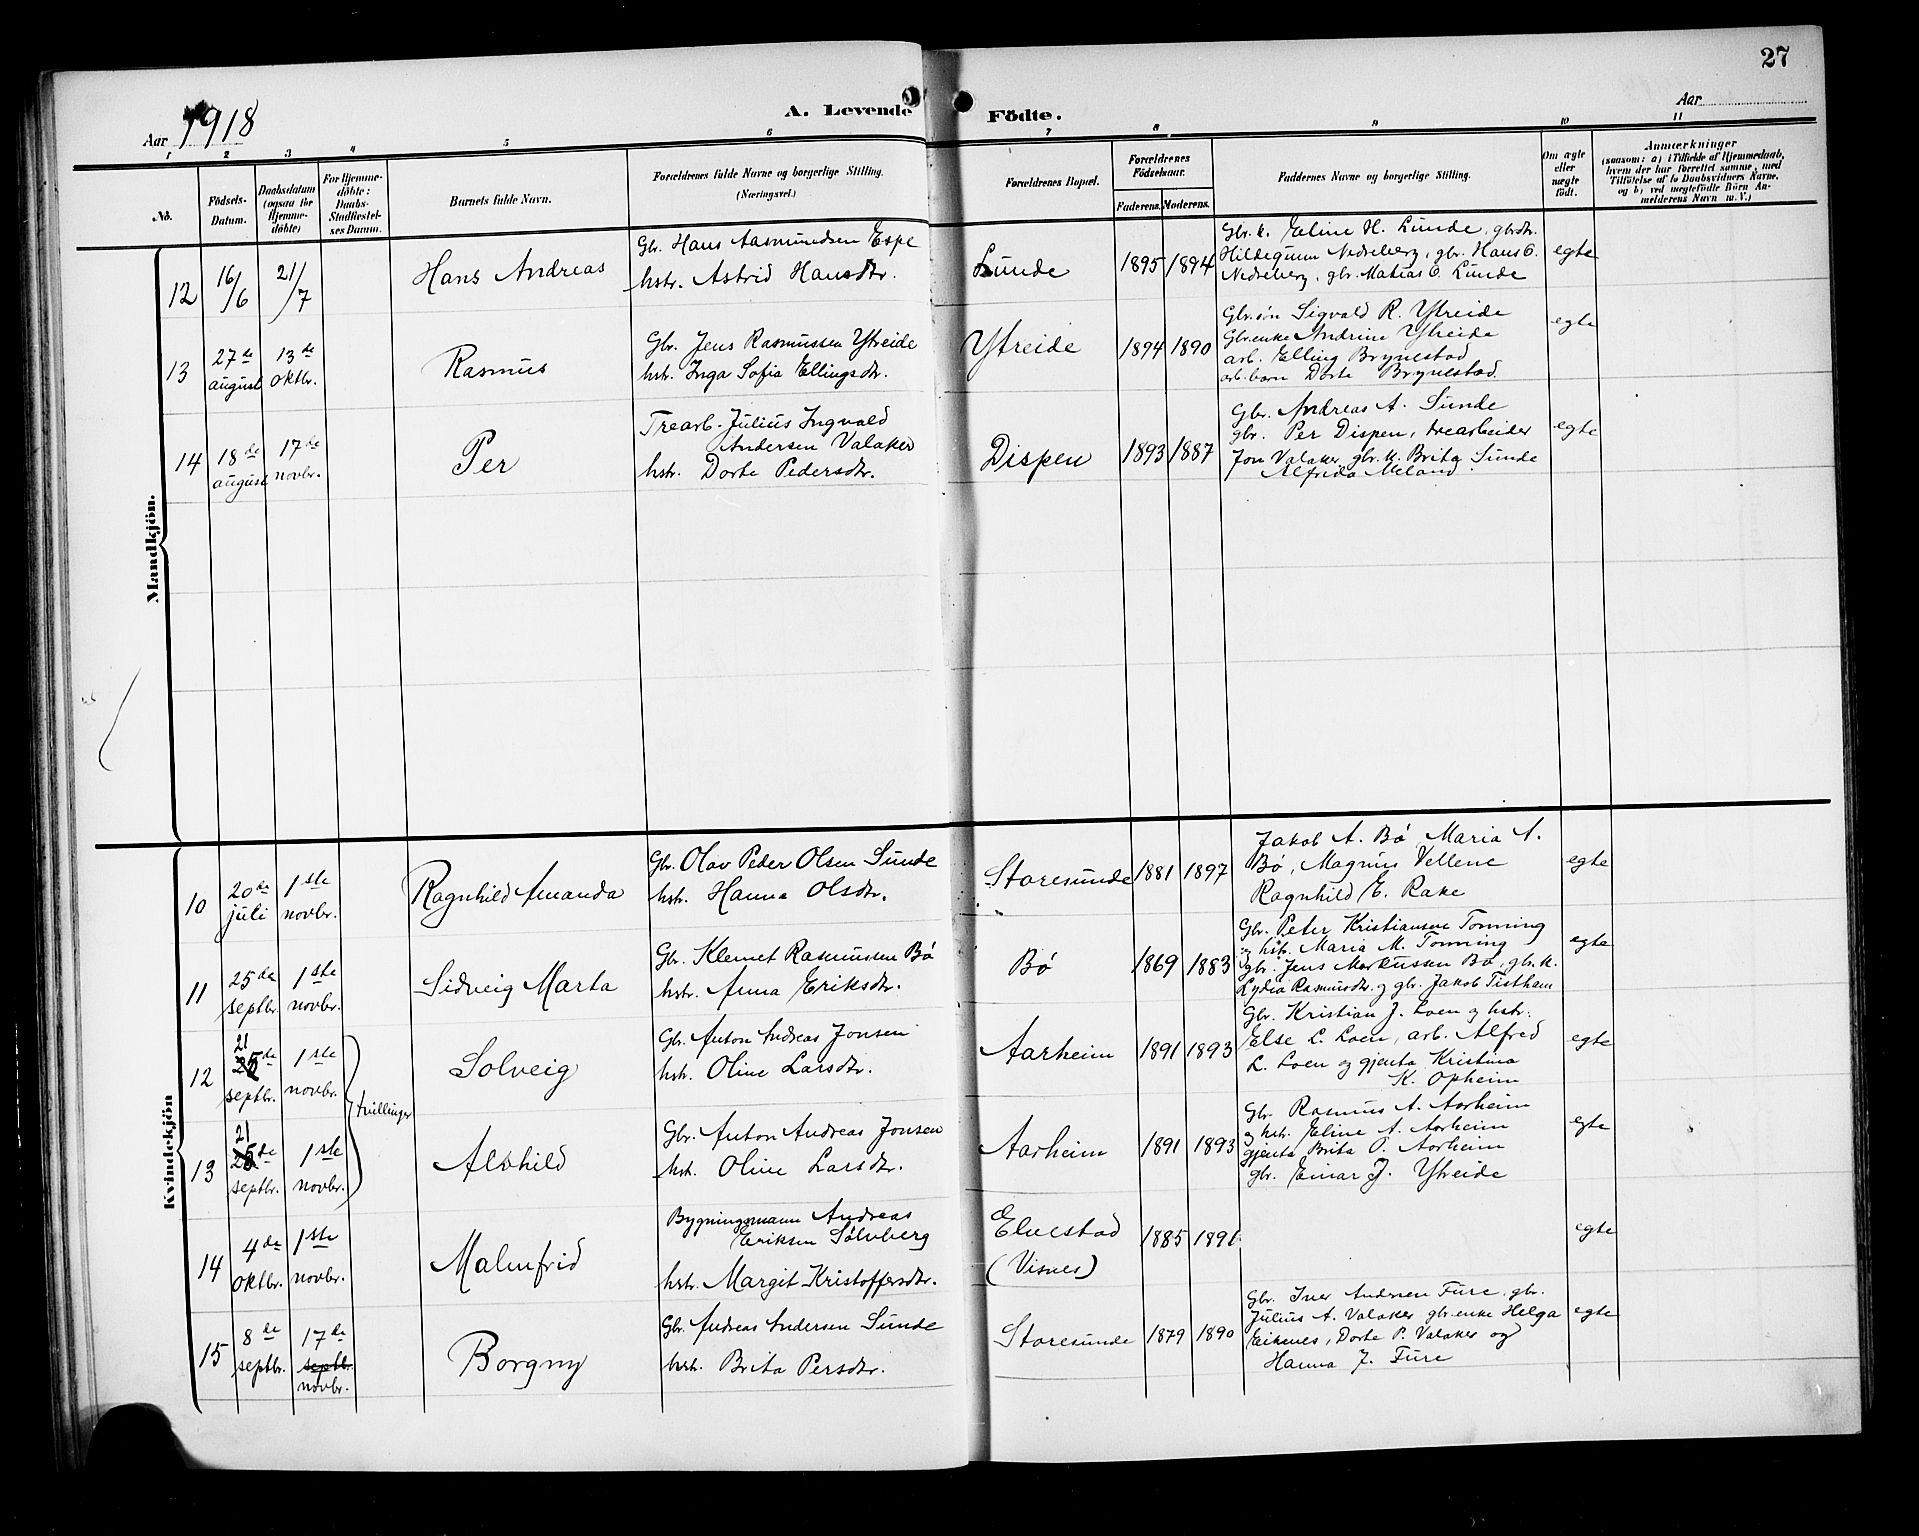 27
Aar 1918
A. Levende Födte.
Aar
1 2 3 4 5 6 7 8 9 10 11
No.
Födsels-
Datum.
Daabsdatum
(ogsaa for
Hjemme-
döbte)
For Hjemme-
döbte:
Daabs-
Stadfæstel-
ses Datum.
Barnets fulde Navn.
Forældrenes fulde Navne og borgerlige Stilling.
(Næringsvei.)
Forældrenes Bopæl.
Forældrenes
Födselsaar.
Faderens. Moderens.
Faddernes Navne og borgerlige Stilling.
Om ægte
eller
uægte
födt.
Anmærkninger
(saasom: a) i Tilfælde af Hjemmedaab,
hvem der har forrettet samme, med
Tilföielse af to Daabsvidners Navne,
og b) ved uægtefödte Börn An-
melderens Navn m. V.)
Mandkjön.
12
16/6
21/7
Hans Andreas
Gbr. Hans Aasmundsen Espe
hstr. Astrid Hansdtr.
Lunde
1895 1894
Gbr.k. Eline H. Lunde, gbrdtr.
Hildegunn Nedreberg, gbr. Hans O.
Nedreberg, gbr. Matias O. Lunde
egte
13
27de
august
13de
oktbr.
Rasmus
Gbr. Jens Rasmussen Ytreide
hstr. Inga Sofia Ellingsdtr.
Ytreide
1894 1890
Gbr.søn Sigvald R. Ytreide
Gbr.enke Andrine Ytreide
arb. Elling Brynestad
arb.barn Dorte Brynestad
egte
14
18de
august
17de
novbr.
Per
Trearb. Julius Ingvald
Andersen Valaker
hstr. Dorte Pedersdtr.
Dispen
1893 1887
Gbr. Andreas A. Sunde
gbr. Per Dispen, trearbeider
Jon Valaker, gbr.k. Brita Sunde
Alfrida Meland
egte
Kvindekjön
10
20de
juli
1ste
novbr.
Ragnhild Amanda
Gbr. Olav Peder Olsen Sunde
hstr. Hanna Olsdtr.
Storesunde
1881 1897
Jakob A. Bø Maria A.
Bø, Magnus Vellene
Ragnhild E. Rake
egte
11
25de
septbr.
1ste
novbr.
Sidveig Marta
Gbr. Klemet Rasmussen Bø
hstr. Anna Eriksdtr.
Bø
1869 1883
Gbr. Peter Kristiansen Tonning
og hstr. Maria M. Tonning
gbr. Jens Markussen Bø, gbr.k.
Lydia Rasmusdtr. og gbr. Jakob Tistham
egte
12
21
25de
septbr.
1ste
novbr.
tvillinger
Solveig
Gbr. Anton Andreas Jonsen
hstr. Oline Larsdtr.
Aarheim
1891 1893
Gbr. Kristian J. Loen og hstr.
Else L. Loen, arb. Alfred
L. Loen og gjenta Kristina
K. Opheim
egte
13
21
25de
septbr.
1ste
novbr.
Alvhild
Gbr. Anton Andreas Jonsen
hstr. Oline Larsdtr.
Aarheim
1891 1893
Gbr. Rasmus A. Aarheim
og hstr. Eline A. Aarheim
gjenta Brita O. Aarheim
gbr. Einar J. Ytreide
egte
14
4de
oktbr.
1ste
novbr.
Malmfrid
Bygningsmann Andreas
Eriksen Sølvberg
hstr. Margit Kristoffersdtr.
Elvestad
(Visnes)
1885 1891
egte
15
8de
septbr.
17de
septb.
novbr.
Borgny
Gbr. Andreas Andersen Sunde
hstr. Brita Persdtr.
Storesunde
1879 1890
Gbr. Iver Andersen Fure, gbr.
Julius A. Valaker gbr.enke Helga
Eikenes, Dorte P. Valaker og
Hanna J. Fure
egte